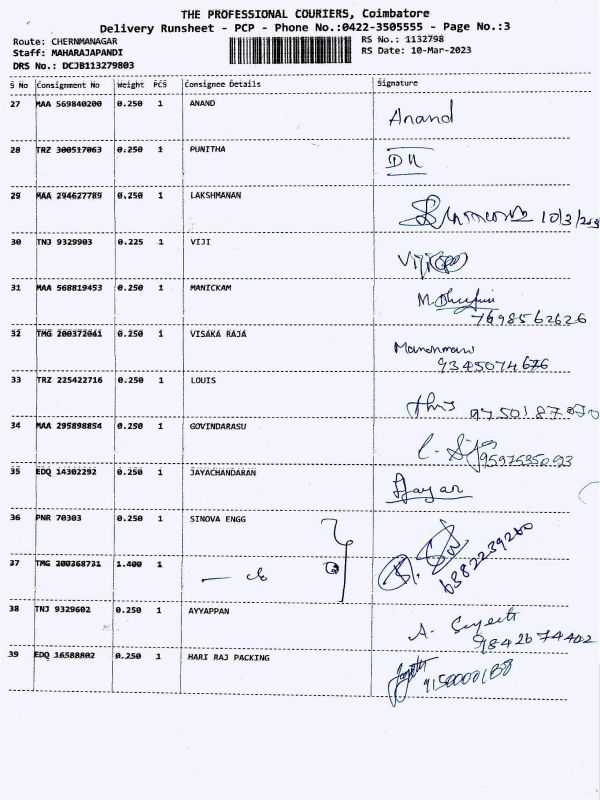 THE PROFESSIONAL COURIERS, Coimbatore
Delivery Runsheet - PCP - Phone No.:0422-3505555 - Page No.:3
Route: CHERNMANAGAR
Staff: MAHARAJAPANDI
DRS No.: DCJB113279803
RS No.: 1132798
RS Date: 10-Mar-2023
S No Consignment No Weight PCS Consignee Details Signature
27 MAA 569840200 0.250 1 ANAND Anand
28 TRZ 300517063 0.250 1 PUNITHA
29 MAA 294627789 0.250 1 LAKSHMANAN 10/3/203
30 TNJ 9329903 0.225 1 VIJI Viji
31 MAA 568819453 0.250 1 MANICKAM M.
7698562626
32 TMG 200372041 0.250 1 VISAKA RAJA
9345074676
33 TRZ 225422716 0.250 1 LOUIS
34 MAA 295898854 0.250 1 GOVINDARASU
9597535093
35 EDQ 14302292 0.250 1 JAYACHANDARAN
36 PNR 70303 0.250 1 SINOVA ENGG
37 TMG 200368731 1.400 1 6382239260
38 TNJ 9329602 0.250 1 AYYAPPAN A.
9842674402
39 EDQ 16588802 0.250 1 HARI RAJ PACKING